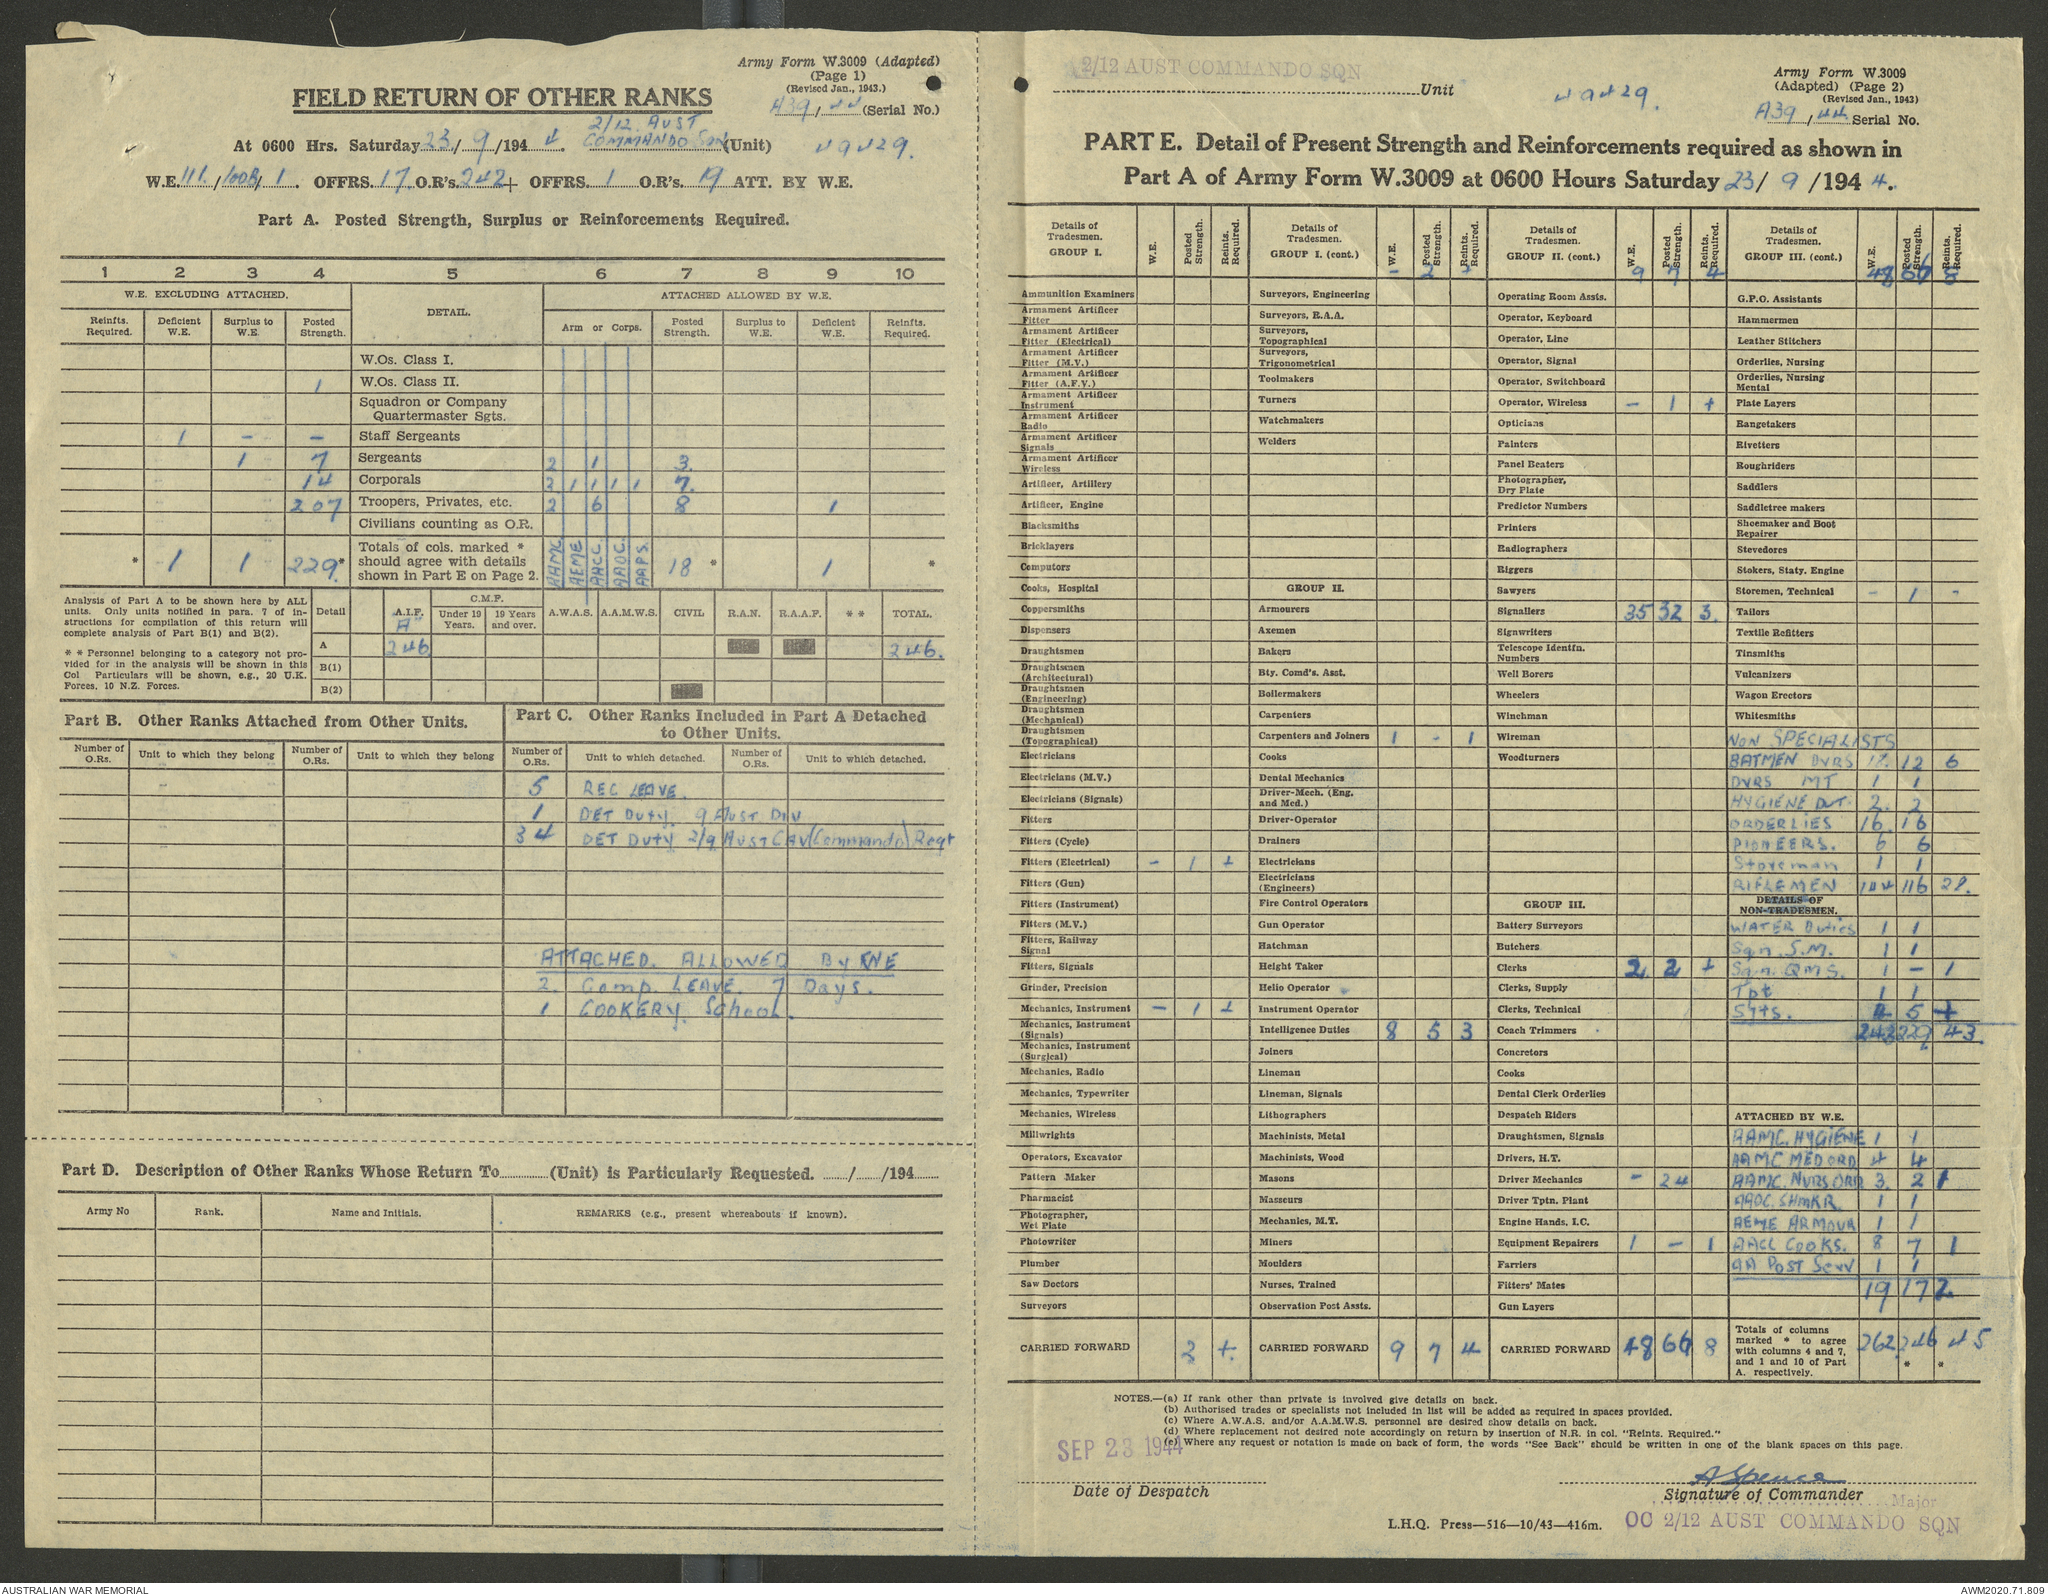 Army Form W.3009 (Adapted)
(Page 1)
(Revised Jan., 1943.)
FIELD RETURN OF OTHER RANKS
A39/44 (Serial No.)
At 0600 Hrs. Saturday 23/9/1944. 2/12 AUST COMMANDO SQN (Unit) 49429.
W.E. 111/100B/1. OFFRS. 17 O.R's. 242 + OFFRS. 1 O.R's. 19 ATT. BY W.E.
Part A. Posted Strength, Surplus or Reinforcements Required.
1 2 3 4 5 6 7 8 9 10
W.E. EXCLUDING ATTACHED. DETAIL. ATTACHED ALLOWED BY W.E.
Reinfts. Required. Deficient W.E. Surplus to W.E. Posted Strength. Arm or Corps. Posted Strength. Surplus to W.E. Deficient W.E. Reinfts. Required.
W.Os. Class I.
1 W.Os. Class II.
Squadron or Company Quartermaster Sgts.
1 - - Staff Sergeants
1 7 Sergeants 2 1 3.
14 Corporals 2 1 1 1 1 7.
207 Troopers, Privates, etc. 2 6 8 1
Civilians counting as O.R.
* 1 1 229* Totals of cols. marked * should agree with details shown in Part E on Page 2. AAMC AEME AACC AAOC AAPS. 18 * 1 *
Analysis of Part A to be shown here by ALL units. Only units notified in para. 7 of instructions for compilation of this return will complete analysis of Part B(1) and B(2).
* * Personnel belonging to a category not provided for in the analysis will be shown in this Col Particulars will be shown, e.g., 20 U.K. Forces, 10 N.Z. Forces.
Detail A.I.F. "A" C.M.F. Under 19 Years. 19 Years and over. A.W.A.S. A.A.M.W.S. CIVIL R.A.N. R.A.A.F. * * TOTAL.
A 246 246.
B(1)
B(2)
Part B. Other Ranks Attached from Other Units.
Number of O.Rs. Unit to which they belong Number of O.Rs. Unit to which they belong
Part C. Other Ranks Included in Part A Detached to Other Units.
Number of O.Rs. Unit to which detached. Number of O.Rs. Unit to which detached.
5 REC LEAVE.
1 DET DUTY. 9 AUST DIV
34 DET DUTY 2/9 AUST CAV (Commando) Regt
ATTACHED. ALLOWED By
2. Comp. LEAVE. 7 Days.
1 COOKERY. SCHOOL.
Part D. Description of Other Ranks Whose Return To (Unit) is Particularly Requested. / /194
Army No Rank. Name and Initials. REMARKS (e.g., present whereabouts if known).
2/12 AUST COMMANDO SQN
Unit 49429.
Army Form W.3009
(Adapted) (Page 2)
(Revised Jan., 1943)
A39/44 Serial No.
PART E. Detail of Present Strength and Reinforcements required as shown in
Part A of Army Form W.3009 at 0600 Hours Saturday 23/9/1944.
Details of Tradesmen. GROUP I. W.E. Posted Strength. Reints. Required.
Ammunition Examiners
Armament Artificer Fitter
Armament Artificer Fitter (Electrical)
Armament Artificer Fitter (M.V.)
Armament Artificer Fitter (A.F.V.)
Armament Artificer Instrument
Armament Artificer Radio
Armament Artificer Signals
Armament Artificer Wireless
Artificer, Artillery
Artificer, Engine
Blacksmiths
Bricklayers
Computors
Cooks, Hospital
Coppersmiths
Dispensers
Draughtsmen
Draughtsmen (Architectural)
Draughtsmen (Engineering)
Draughtsmen (Mechanical)
Draughtsmen (Topographical)
Electricians
Electricians (M.V.)
Electricians (Signals)
Fitters
Fitters (Cycle)
Fitters (Electrical) - 1 +
Fitters (Gun)
Fitters (Instrument)
Fitters (M.V.)
Fitters, Railway Signal
Fitters, Signals
Grinder, Precision
Mechanics, Instrument - 1 +
Mechanics, Instrument (Signals)
Mechanics, Instrument (Surgical)
Mechanics, Radio
Mechanics, Typewriter
Mechanics, Wireless
Millwrights
Operators, Excavator
Pattern Maker
Pharmacist
Photographer, Wet Plate
Photowriter
Plumber
Saw Doctors
Surveyors
CARRIED FORWARD 2 +
Details of Tradesmen. GROUP I. (cont.) W.E. Posted Strength. Reints. Required.
- 2 +
Surveyors, Engineering
Surveyors, R.A.A.
Surveyors, Topographical
Surveyors, Trigonometrical
Toolmakers
Turners
Watchmakers
Welders
GROUP II.
Armourers
Axemen
Bakers
Bty. Comd's. Asst.
Boilermakers
Carpenters
Carpenters and Joiners 1 - 1
Cooks
Dental Mechanics
Driver-Mech. (Eng. and Med.)
Driver-Operator
Drainers
Electricians
Electricians (Engineers)
Fire Control Operators
Gun Operator
Hatchman
Height Taker
Helio Operator
Instrument Operator
Intelligence Duties 8 5 3
Joiners
Lineman
Lineman, Signals
Lithographers
Machinists, Metal
Machinists, Wood
Masons
Masseurs
Mechanics, M.T.
Miners
Moulders
Nurses, Trained
Observation Post Assts.
CARRIED FORWARD 9 7 4
Details of Tradesmen. GROUP II. (cont.) W.E. Posted Strength. Reints. Required.
9 7 4
Operating Room Assts.
Operator, Keyboard
Operator, Line
Operator, Signal
Operator, Switchboard
Operator, Wireless - 1 +
Opticians
Painters
Panel Beaters
Photographer, Dry Plate
Predictor Numbers
Printers
Radiographers
Riggers
Sawyers
Signallers 35 32 3.
Signwriters
Telescope Identfn. Numbers
Well Borers
Wheelers
Winchman
Wireman
Woodturners
GROUP III.
Battery Surveyors
Butchers
Clerks 2 2 +
Clerks, Supply
Clerks, Technical
Coach Trimmers
Concretors
Cooks
Dental Clerk Orderlies
Despatch Riders
Draughtsmen, Signals
Drivers, H.T.
Driver Mechanics - 24
Driver Tptn. Plant
Engine Hands, I.C.
Equipment Repairers 1 - 1
Farriers
Fitters' Mates
Gun Layers
CARRIED FORWARD 48 66 8
Details of Tradesmen. GROUP III. (cont.) W.E. Posted Strength. Reints. Required.
48 66 8
G.P.O. Assistants
Hammermen
Leather Stitchers
Orderlies, Nursing
Orderlies, Nursing Mental
Plate Layers
Rangetakers
Rivetters
Roughriders
Saddlers
Saddletree makers
Shoemaker and Boot Repairer
Stevedores
Stokers, Staty. Engine
Storemen, Technical - 1 -
Tailors
Textile Refitters
Tinsmiths
Vulcanizers
Wagon Erectors
Whitesmiths
NON SPECIALISTS
BATMEN DVRS 18. 12 6
DVRS MT 1 1
HYGIENE DUT. 2. 2
ORDERLIES 16. 16
PIONEERS. 6 6
Storeman 1 1
RIFLEMEN 144 116 28.
DETAILS OF NON-TRADESMEN.
WATER Duties 1 1
Sqn. S.M. 1 1
Sqn. QMS. 1 - 1
Tpt 1 1
Sgts. 4 5 +
243 229. 43.
ATTACHED BY W.E.
AAMC. HYGIENE 1 1
AAMC MED ORD 4 4
AAMC. NURS ORD 3. 2 1
AAOC. SHMKR. 1 1
AEME ARMOUR 1 1
AACC COOKS. 8 7 1
AA POST Serv 1 1
19 17 2
Totals of columns marked * to agree with columns 4 and 7, and 1 and 10 of Part A. respectively. 262. 246 * 45 *
NOTES.—(a) If rank other than private is involved give details on back.
(b) Authorised trades or specialists not included in list will be added as required in spaces provided.
(c) Where A.W.A.S. and/or A.A.M.W.S. personnel are desired show details on back.
(d) Where replacement not desired note accordingly on return by insertion of N.R. in col. "Reints. Required."
(e) Where any request or notation is made on back of form, the words "See Back" should be written in one of the blank spaces on this page.
SEP 23 1944
Date of Despatch
A Spence
Signature of Commander
Major
L.H.Q. Press—516—10/43—416m.
OC 2/12 AUST COMMANDO SQN
AUSTRALIAN WAR MEMORIAL
AWM2020.71.809